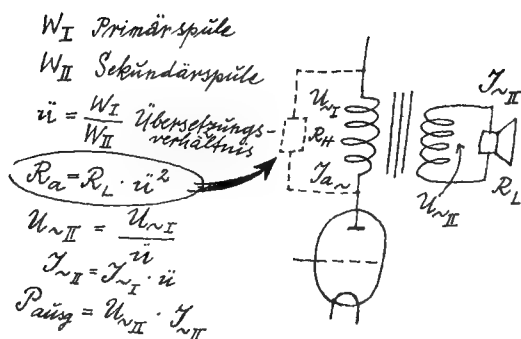 W_I Primärspule
W_II Sekundärspule
ü = W_I / W_II Übersetzungs-
verhältnis
R_a = R_L · ü²
U_~II = U_~I / ü
J_~II = J_~I · ü
P_ausg = U_~II · J_~II
U_~I
R_H
J_a~
J_~II
U_~II
R_L